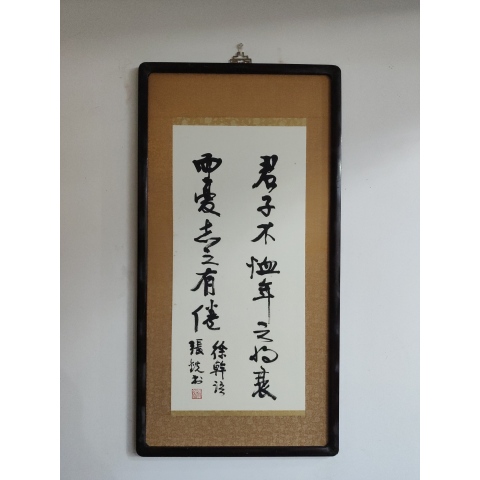 君子不恤年之将衰
而憂志之有倦
徐幹語
張 书